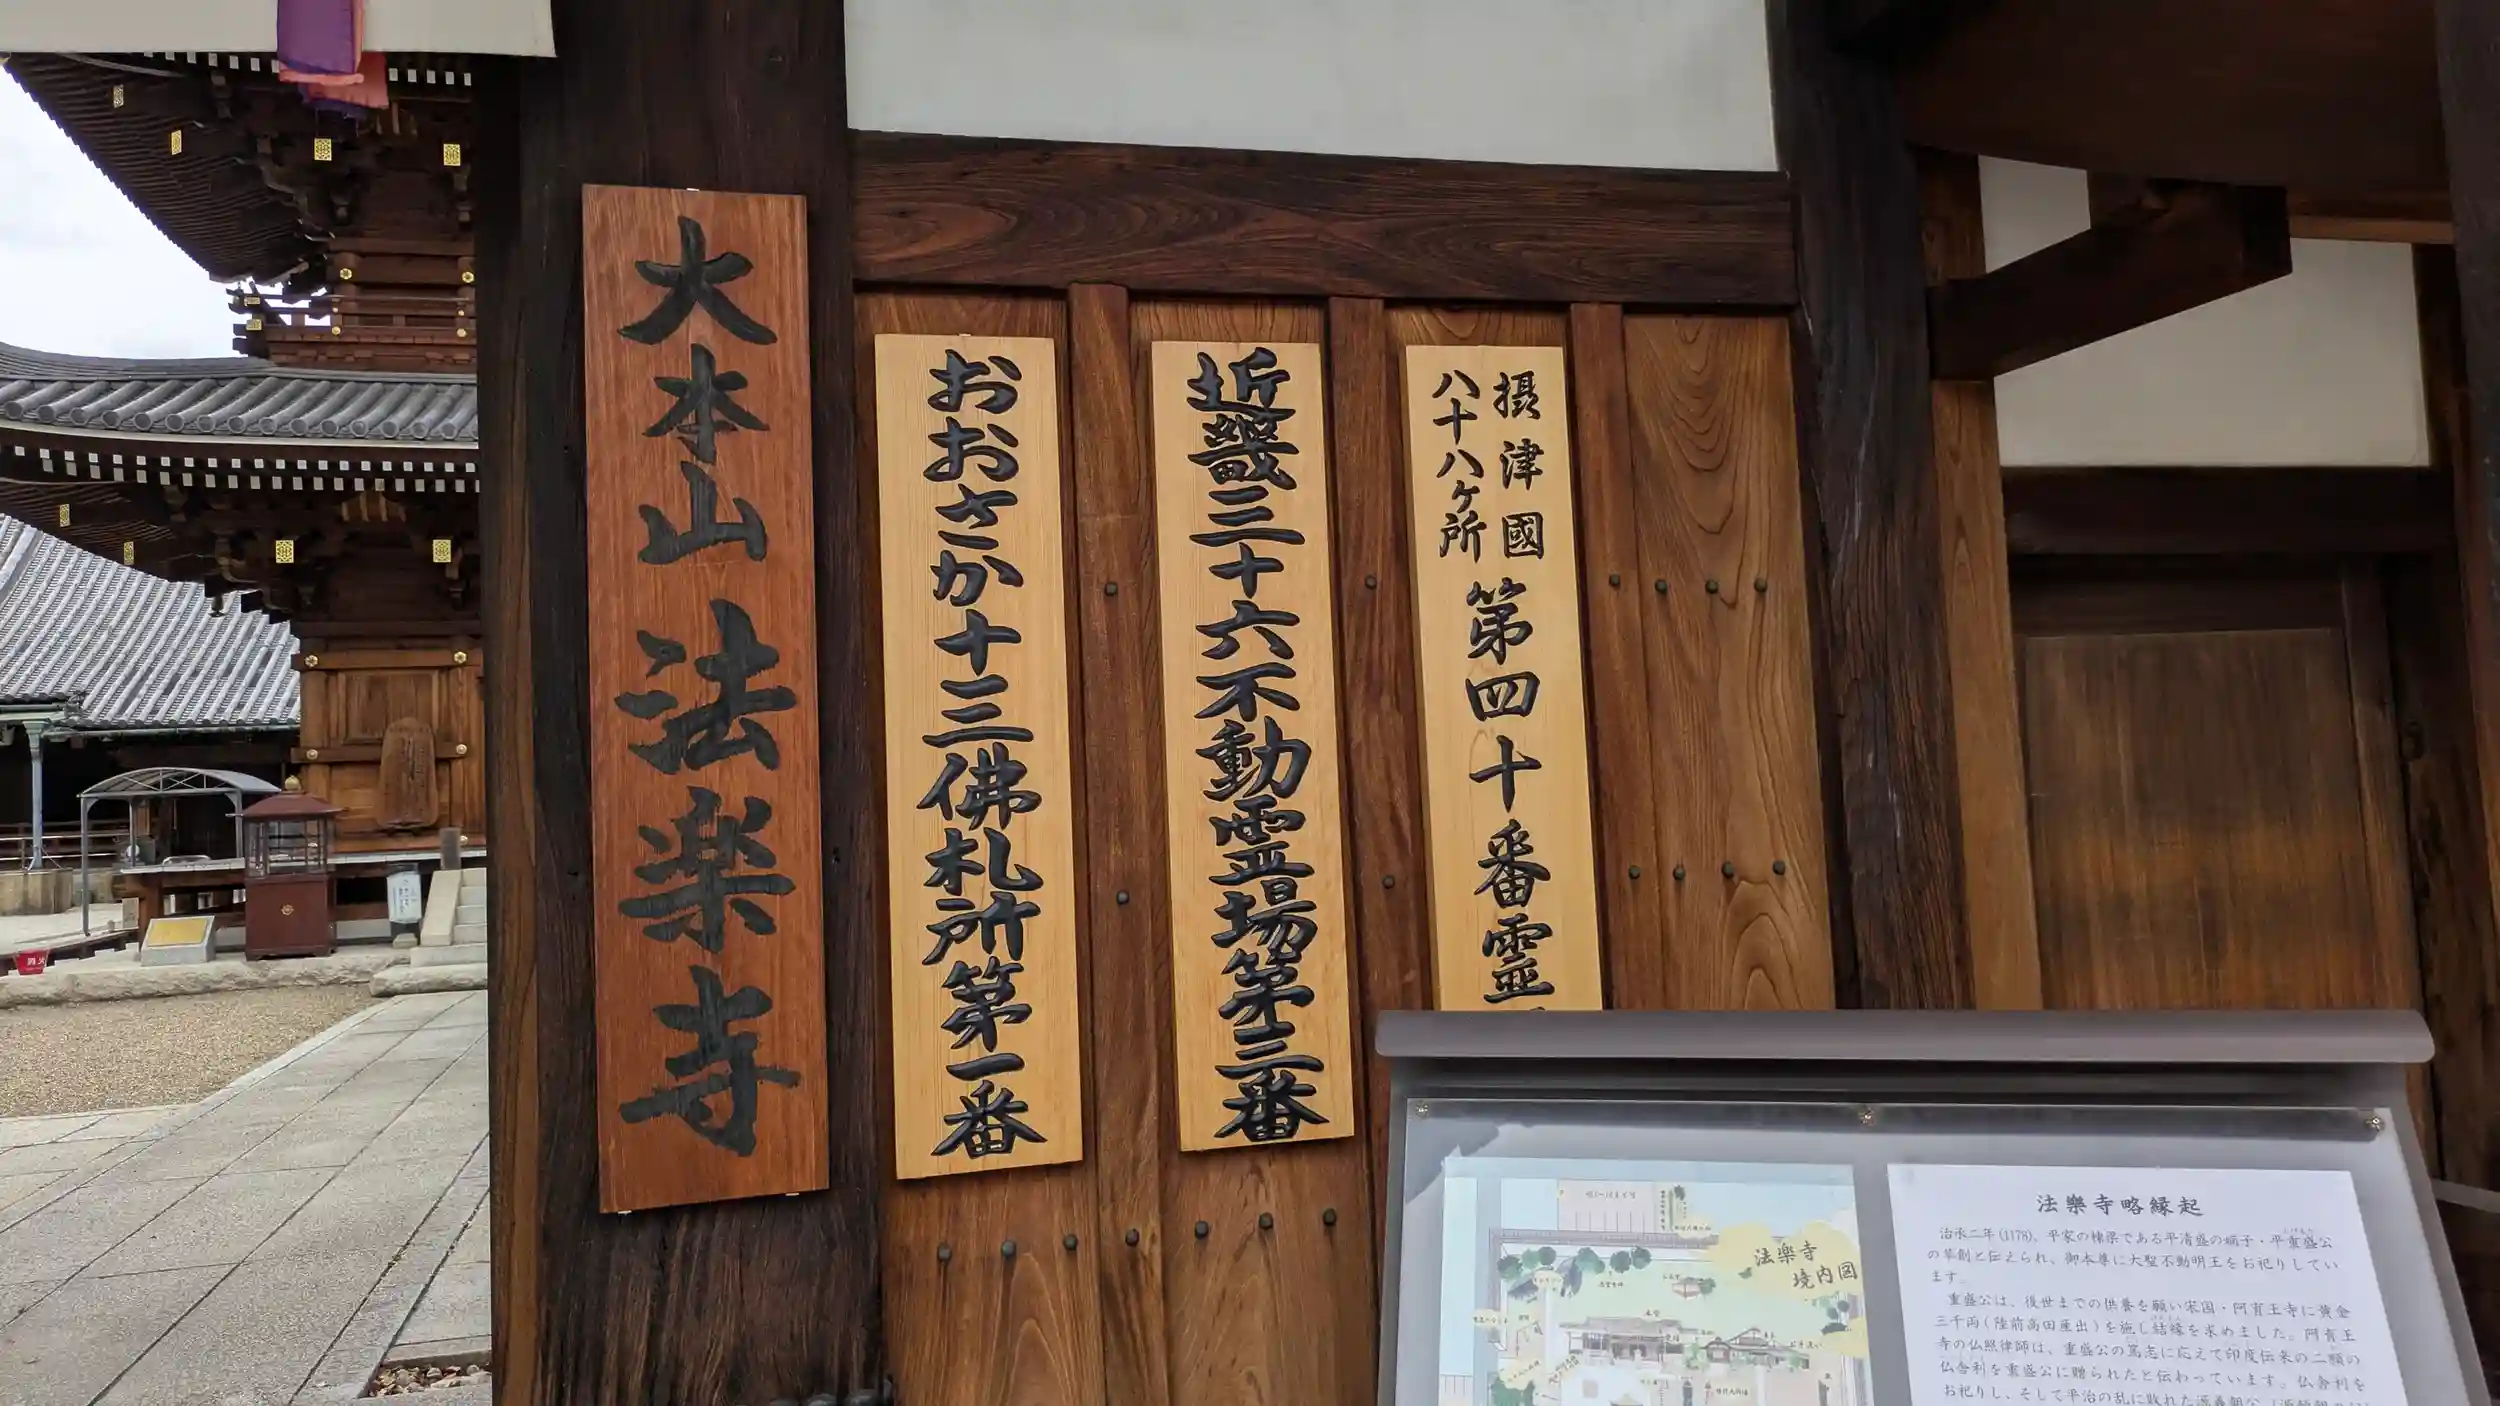 大本山 法楽寺
おおさか十三佛札所第一番
近畿三十六不動霊場第三番
摂津國
八十八ヶ所
第四十番霊
法樂寺
境内図
法樂寺略縁起
治承二年(1178)、平家の棟梁である平清盛の嫡子・平重盛公
の草創と伝えられ、御本尊に大聖不動明王をお祀りしてい
ます。
重盛公は、後世までの供養を願い宋国・阿育王寺に黄金
三千両(陸前高田産出)を施し結縁を求めました。阿育王
寺の仏照律師は、重盛公の篤志に応えて印度伝来の二顆の
仏舎利を重盛公に贈られたと伝わっています。仏舎利を
お祀りし、そして平治の乱に敗れた源義朝公